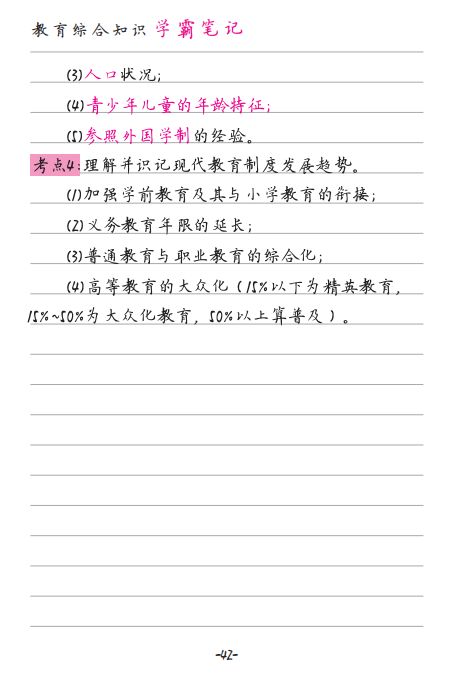 教育综合知识 学霸笔记
(3)人口状况；
(4)青少年儿童的年龄特征；
(5)参照外国学制的经验。
考点4：理解并识记现代教育制度发展趋势。
(1)加强学前教育及其与小学教育的衔接；
(2)义务教育年限的延长；
(3)普通教育与职业教育的综合化；
(4)高等教育的大众化（15%以下为精英教育，
15%~50%为大众化教育，50%以上算普及）。
-42-